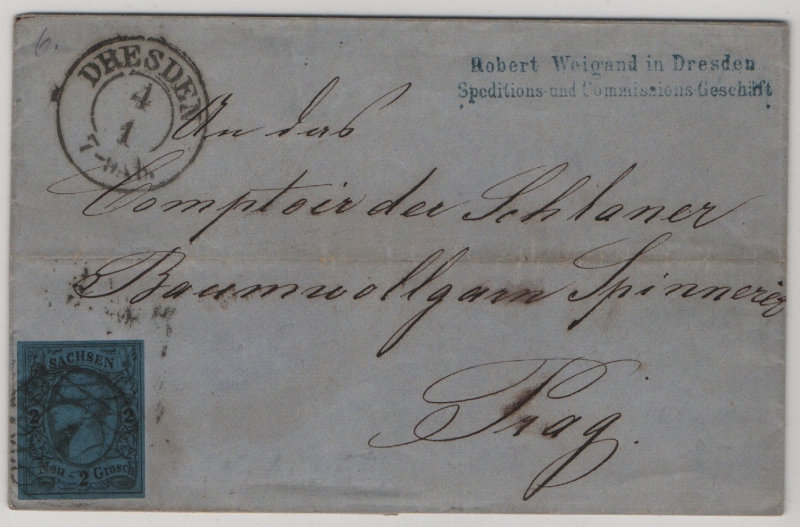 6.
DRESDEN
4
1
Robert Weigand in Dresden
Speditions- und Commissions-Geschäft
An das
Comptoir der Schlaner
Baumwollgarn Spinnerei
Prag.
SACHSEN
2 2
Neu - 2 Grosch